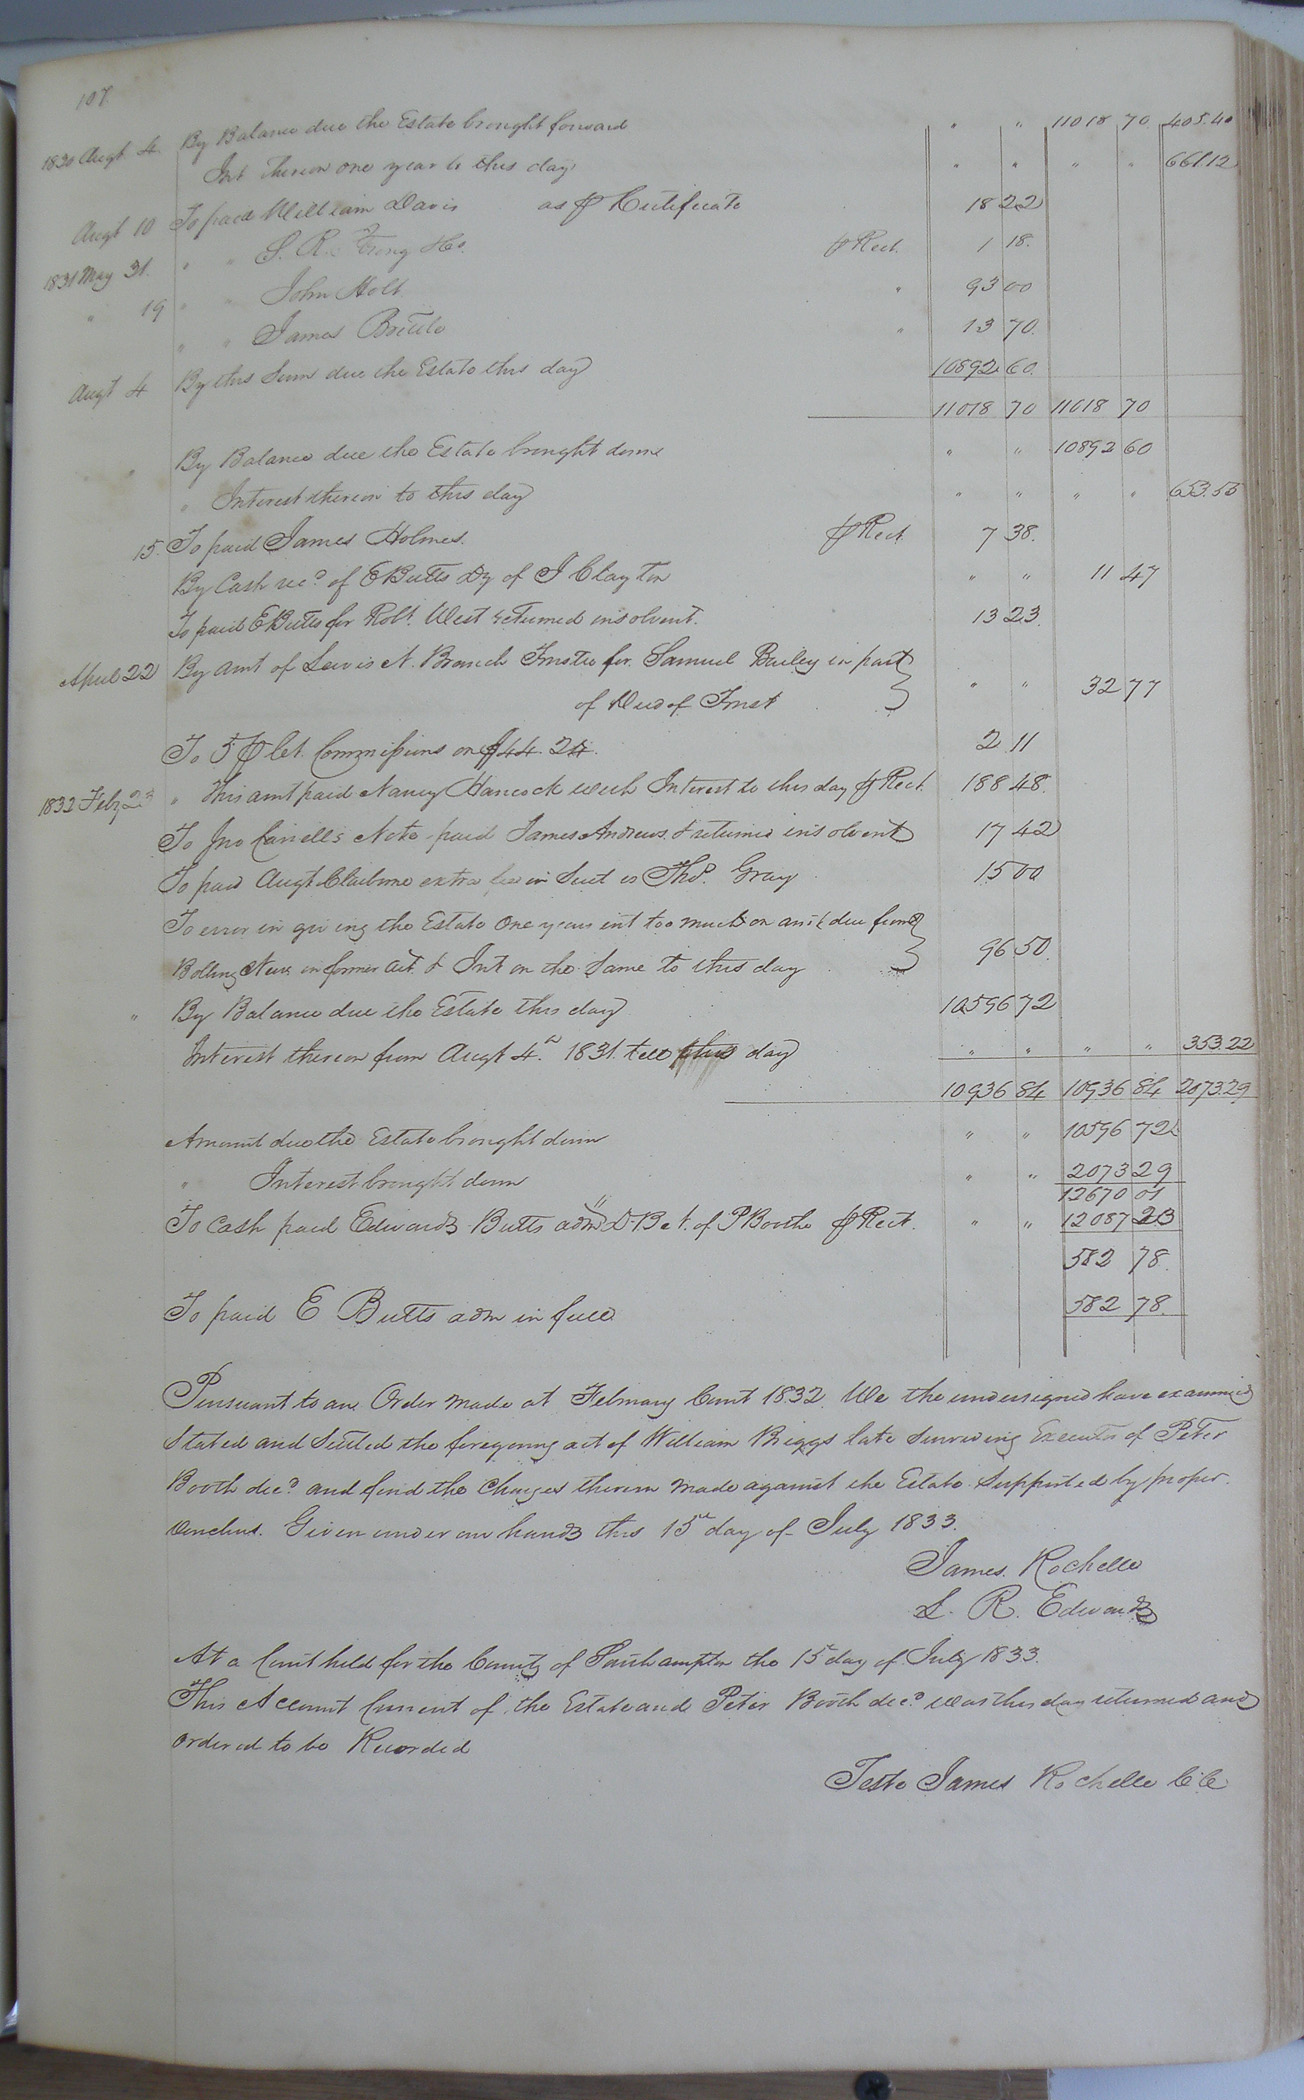 107
1830 Augt 4. By Balance due the Estate brought forward " " 11018 70 405.40
Int thereon one year to this day " " " " 661.12
Augt 10 To paid William Davis as ⅌ Certificate 18 22
1831 May 31. " " S. R. & Co. ⅌ Rect. 1 18.
" 19 " " John Holt " 93 00
" " James Brittle " 13 70.
Augt 4 By this Sum due the Estate this day 10892 60.
11018 70 11018 70
" By Balance due the Estate brought down " " 10892 60
" Interest thereon to this day " " " " 653.55
15. To paid James Holmes. ⅌ Rect 7 38.
By Cash recd. of E Butts Dy of J Clayton " " 11 47
To paid E Butts for Robt. West returned insolvent. 13 23.
April 22 By amt of Lewis N. Branch Trustee for Samuel Bailey in part
of Deed of Trust " " 32 77
To 5 ⅌ Ct. Commissions on $44. 24. 2 11
1832 Feby 23 " This amt paid Nancy Hancock with Interest to this day ⅌ Rect. 188 48.
To Jno Carrell's Note paid James Andrews & returned insolvent 17 42
To paid Augt Claiborne extra fee in Suit vs Thos. Gray 15 00
To error in giving the Estate one years int too much on amt due from
Bolling in former act & Int on the Same to this day 96 50.
" By Balance due the Estate this day 10596 72
Interest thereon from Augt 4th 1831. till this day " " " " 353.22
10936 84 10936 84 2073.29
Amount due the Estate brought down " " 10596 72
" Interest brought down " " 2073 29
12670 01
To Cash paid Edwards Butts adm D. B. N. of P Booth ⅌ Rect. " " 12087 23
582 78.
To paid E Butts adm in full 582 78.
Pursuant to an Order made at February Court 1832. We the undersigned have examined
Stated and Settled the foregoing act of William Briggs late Surviving Executor of Peter
Booth decd. and find the Charges therein made against the Estate Supported by proper
vouchers. Given under our hands this 15th day of July 1833.
James. Rochelle
L. R. Edwards
At a Court held for the County of Southampton the 15th day of July 1833.
This Account Current of the Estate and Peter Booth decd. was this day returned and
ordered to be Recorded
Teste James Rochelle C.C.